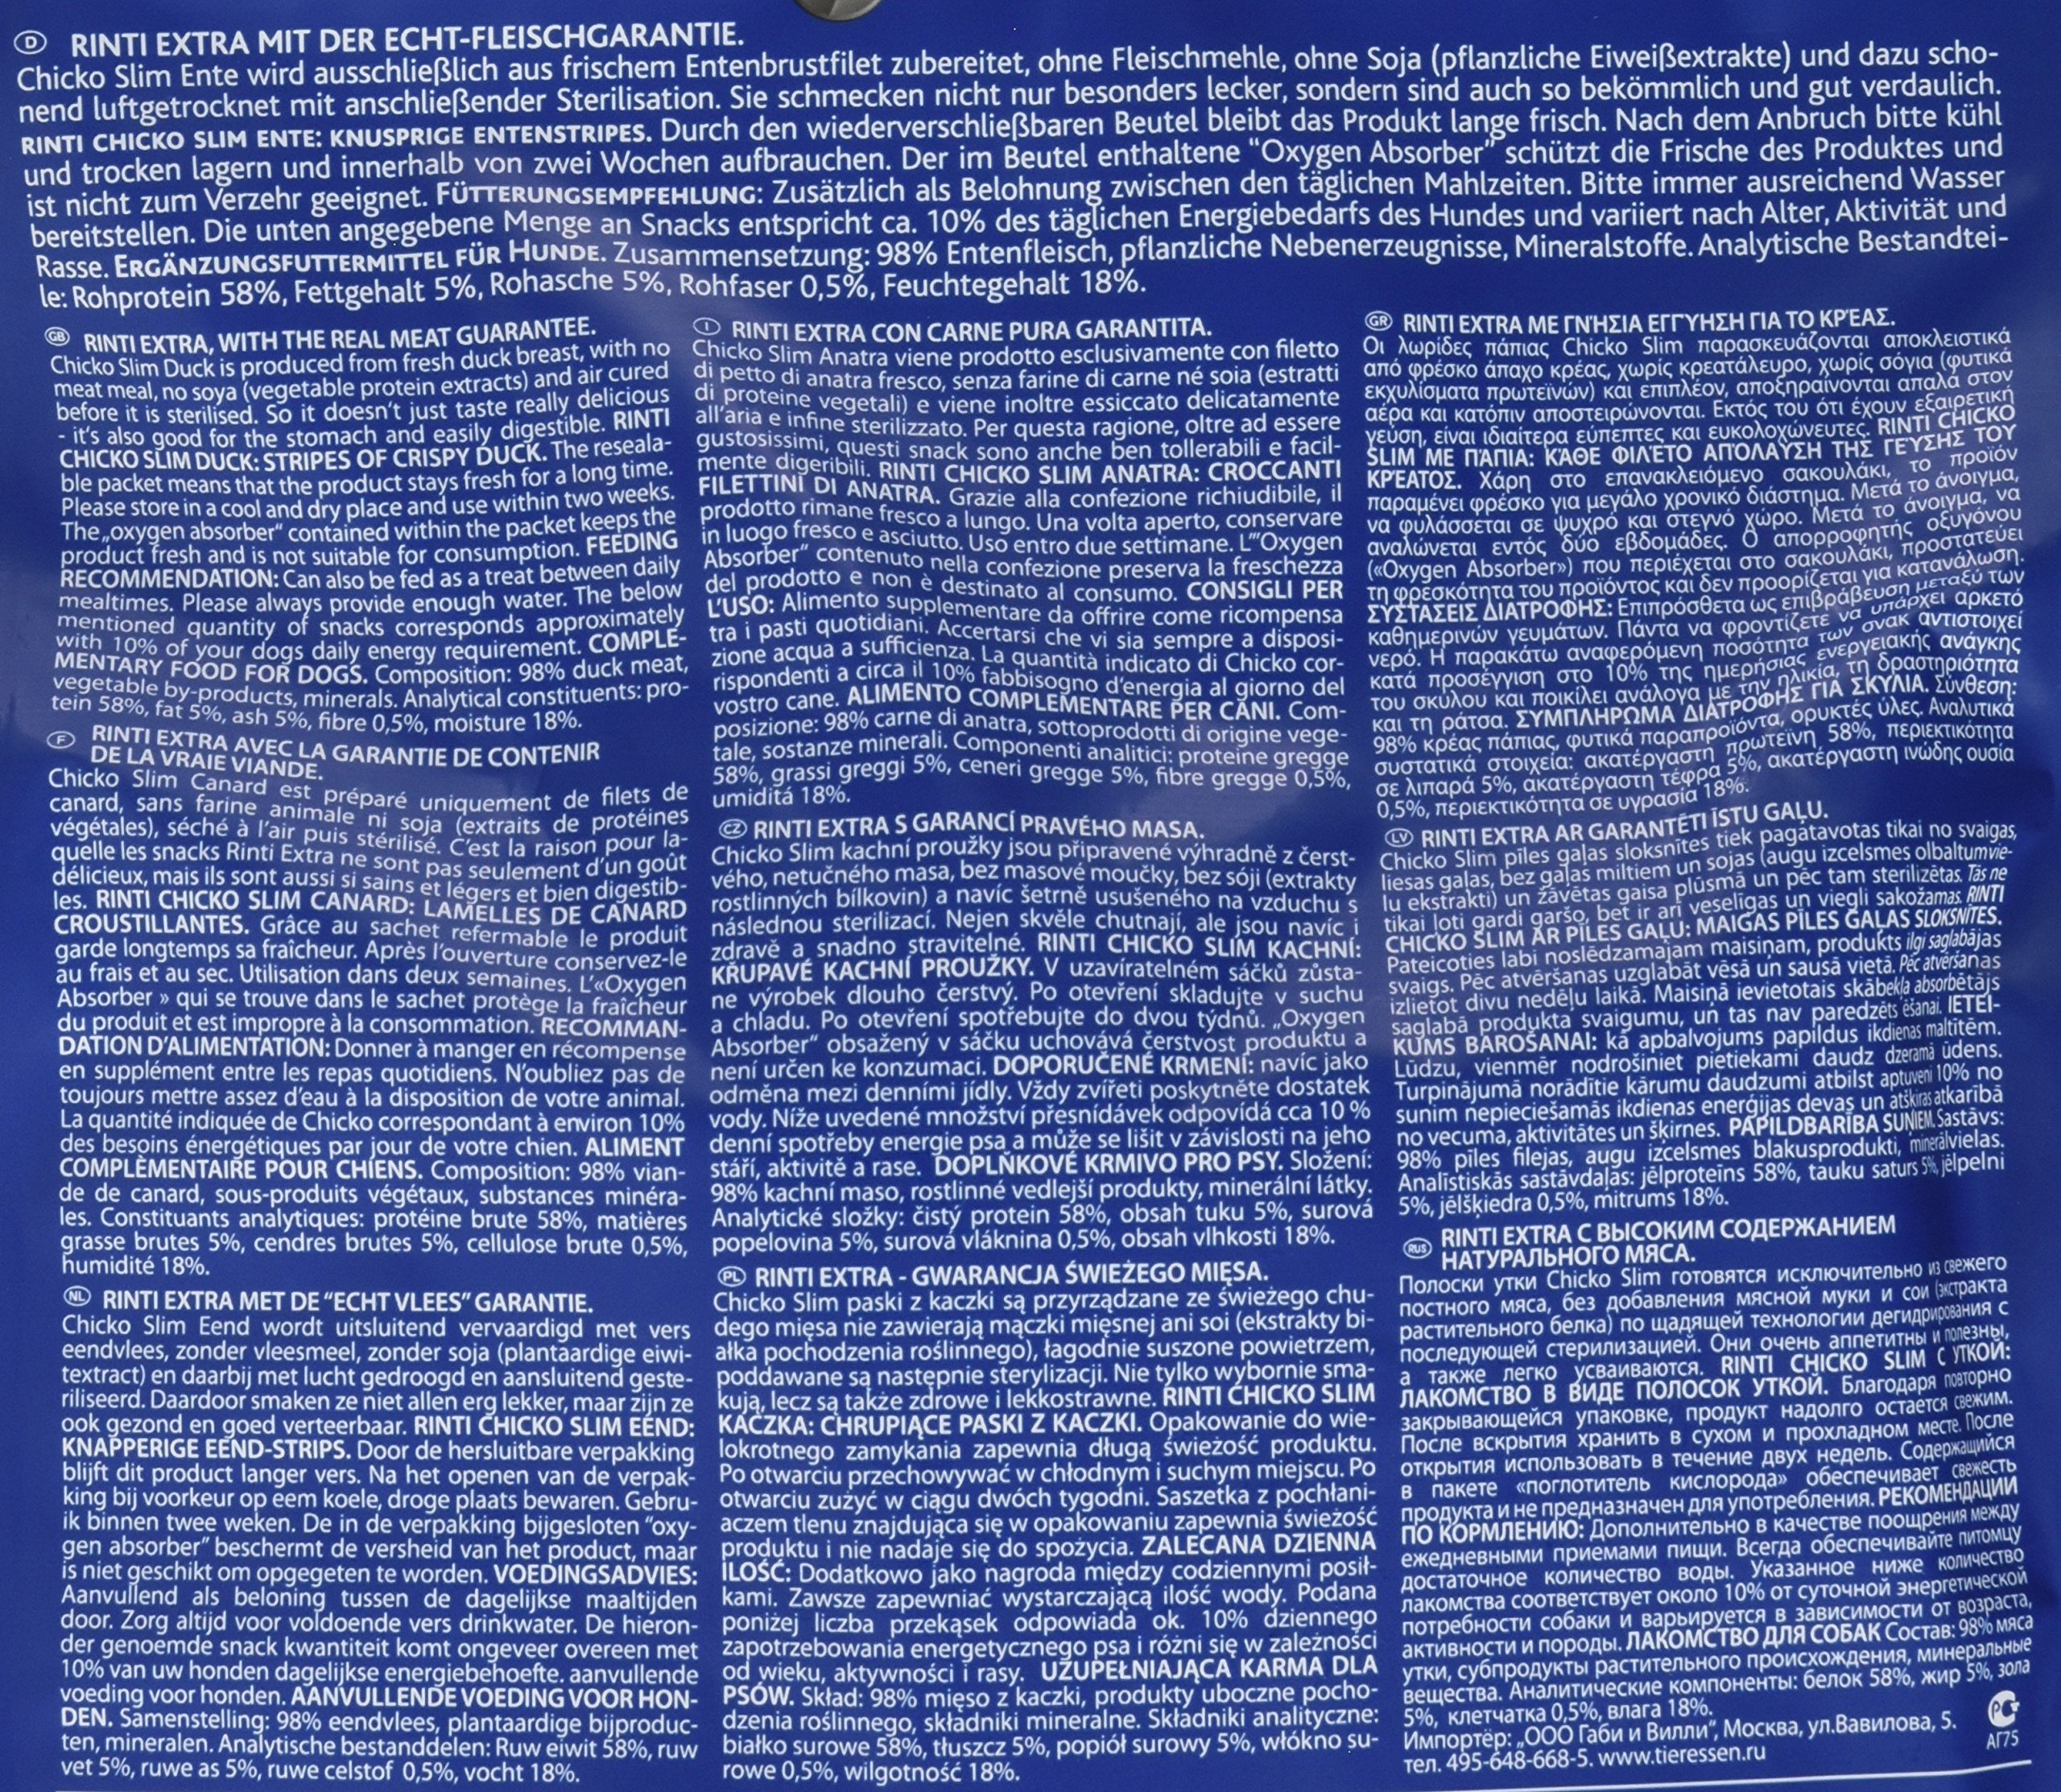 D RINTI EXTRA MIT DER ECHT-FLEISCHGARANTIE.
Chicko Slim Ente wird ausschließlich aus frischem Entenbrustfilet zubereitet, ohne Fleischmehle, ohne Soja (pflanzliche Eiweißextrakte) und dazu scho-
nend luftgetrocknet mit anschließender Sterilisation. Sie schmecken nicht nur besonders lecker, sondern sind auch so bekömmlich und gut verdaulich.
RINTI CHICKO SLIM ENTE: KNUSPRIGE ENTENSTRIPES. Durch den wiederverschließbaren Beutel bleibt das Produkt lange frisch. Nach dem Anbruch bitte kühl
und trocken lagern und innerhalb von zwei Wochen aufbrauchen. Der im Beutel enthaltene "Oxygen Absorber" schützt die Frische des Produktes und
ist nicht zum Verzehr geeignet. FÜTTERUNGSEMPFEHLUNG: Zusätzlich als Belohnung zwischen den täglichen Mahlzeiten. Bitte immer ausreichend Wasser
bereitstellen. Die unten angegebene Menge an Snacks entspricht ca. 10% des täglichen Energiebedarfs des Hundes und variiert nach Alter, Aktivität und
Rasse. ERGÄNZUNGSFUTTERMITTEL FÜR HUNDE. Zusammensetzung: 98% Entenfleisch, pflanzliche Nebenerzeugnisse, Mineralstoffe. Analytische Bestandtei-
le: Rohprotein 58%, Fettgehalt 5%, Rohasche 5%, Rohfaser 0,5%, Feuchtegehalt 18%.
GB RINTI EXTRA, WITH THE REAL MEAT GUARANTEE.
Chicko Slim Duck is produced from fresh duck breast, with no
meat meal, no soya (vegetable protein extracts) and air cured
before it is sterilised. So it doesn't just taste really delicious
- it's also good for the stomach and easily digestible. RINTI
CHICKO SLIM DUCK: STRIPES OF CRISPY DUCK. The reseala-
ble packet means that the product stays fresh for a long time.
Please store in a cool and dry place and use within two weeks.
The „oxygen absorber" contained within the packet keeps the
product fresh and is not suitable for consumption. FEEDING
RECOMMENDATION: Can also be fed as a treat between daily
mealtimes. Please always provide enough water. The below
mentioned quantity of snacks corresponds approximately
with 10% of your dogs daily energy requirement. COMPLE-
MENTARY FOOD FOR DOGS. Composition: 98% duck meat,
vegetable by-products, minerals. Analytical constituents: pro-
tein 58%, fat 5%, ash 5%, fibre 0,5%, moisture 18%.
F RINTI EXTRA AVEC LA GARANTIE DE CONTENIR
DE LA VRAIE VIANDE.
Chicko Slim Canard est préparé uniquement de filets de
canard, sans farine animale ni soja (extraits de protéines
végétales), séché à l'air puis stérilisé. C'est la raison pour la-
quelle les snacks Rinti Extra ne sont pas seulement d'un goût
délicieux, mais ils sont aussi si sains et légers et bien digestib-
les. RINTI CHICKO SLIM CANARD: LAMELLES DE CANARD
CROUSTILLANTES. Grâce au sachet refermable le produit
garde longtemps sa fraîcheur. Après l'ouverture conservez-le
au frais et au sec. Utilisation dans deux semaines. L'«Oxygen
Absorber » qui se trouve dans le sachet protège la fraîcheur
du produit et est impropre à la consommation. RECOMMAN-
DATION D'ALIMENTATION: Donner à manger en récompense
en supplément entre les repas quotidiens. N'oubliez pas de
toujours mettre assez d'eau à la disposition de votre animal.
La quantité indiquée de Chicko correspondant à environ 10%
des besoins énergétiques par jour de votre chien. ALIMENT
COMPLÉMENTAIRE POUR CHIENS. Composition: 98% vian-
de de canard, sous-produits végétaux, substances minéra-
les. Constituants analytiques: protéine brute 58%, matières
grasse brutes 5%, cendres brutes 5%, cellulose brute 0,5%,
humidité 18%.
NL RINTI EXTRA MET DE "ECHT VLEES" GARANTIE.
Chicko Slim Eend wordt uitsluitend vervaardigd met vers
eendvlees, zonder vleesmeel, zonder soja (plantaardige eiwi-
textract) en daarbij met lucht gedroogd en aansluitend geste-
riliseerd. Daardoor smaken ze niet allen erg lekker, maar zijn ze
ook gezond en goed verteerbaar. RINTI CHICKO SLIM EEND:
KNAPPERIGE EEND-STRIPS. Door de hersluitbare verpakking
blijft dit product langer vers. Na het openen van de verpak-
king bij voorkeur op eem koele, droge plaats bewaren. Gebru-
ik binnen twee weken. De in de verpakking bijgesloten "oxy-
gen absorber" beschermt de versheid van het product, maar
is niet geschikt om opgegeten te worden. VOEDINGSADVIES:
Aanvullend als beloning tussen de dagelijkse maaltijden
door. Zorg altijd voor voldoende vers drinkwater. De hieron-
der genoemde snack kwantiteit komt ongeveer overeen met
10% van uw honden dagelijkse energiebehoefte. aanvullende
voeding voor honden. AANVULLENDE VOEDING VOOR HON-
DEN. Samenstelling: 98% eendvlees, plantaardige bijproduc-
ten, mineralen. Analytische bestanddelen: Ruw eiwit 58%, ruw
vet 5%, ruwe as 5%, ruwe celstof 0,5%, vocht 18%.
I RINTI EXTRA CON CARNE PURA GARANTITA.
Chicko Slim Anatra viene prodotto esclusivamente con filetto
di petto di anatra fresco, senza farine di carne né soia (estratti
di proteine vegetali) e viene inoltre essiccato delicatamente
all'aria e infine sterilizzato. Per questa ragione, oltre ad essere
gustosissimi, questi snack sono anche ben tollerabili e facil-
mente digeribili. RINTI CHICKO SLIM ANATRA: CROCCANTI
FILETTINI DI ANATRA. Grazie alla confezione richiudibile, il
prodotto rimane fresco a lungo. Una volta aperto, conservare
in luogo fresco e asciutto. Uso entro due settimane. L'"Oxygen
Absorber" contenuto nella confezione preserva la freschezza
del prodotto e non è destinato al consumo. CONSIGLI PER
L'USO: Alimento supplementare da offrire come ricompensa
tra i pasti quotidiani. Accertarsi che vi sia sempre a disposi-
zione acqua a sufficienza. La quantità indicato di Chicko cor-
rispondenti a circa il 10% fabbisogno d'energia al giorno del
vostro cane. ALIMENTO COMPLEMENTARE PER CANI. Com-
posizione: 98% carne di anatra, sottoprodotti di origine vege-
tale, sostanze minerali. Componenti analitici: proteine gregge
58%, grassi greggi 5%, ceneri gregge 5%, fibre gregge 0,5%,
umiditá 18%.
CZ RINTI EXTRA S GARANCÍ PRAVÉHO MASA.
Chicko Slim kachní proužky jsou připravené výhradně z čerst-
vého, netučného masa, bez masové moučky, bez sóji (extrakty
rostlinných bílkovin) a navíc šetrně usušeného na vzduchu s
následnou sterilizací. Nejen skvěle chutnají, ale jsou navíc i
zdravě a snadno stravitelné. RINTI CHICKO SLIM KACHNÍ:
KŘUPAVÉ KACHNÍ PROUŽKY. V uzavíratelném sáčků zůsta-
ne výrobek dlouho čerstvý. Po otevření skladujte v suchu
a chladu. Po otevření spotřebujte do dvou týdnů. „Oxygen
Absorber" obsažený v sáčku uchovává čerstvost produktu a
není určen ke konzumaci. DOPORUČENÉ KRMENÍ: navíc jako
odměna mezi denními jídly. Vždy zvířeti poskytněte dostatek
vody. Níže uvedené množství přesnídávek odpovídá cca 10 %
denní spotřeby energie psa a může se lišit v závislosti na jeho
stáří, aktivitě a rase. DOPLŇKOVÉ KRMIVO PRO PSY. Složení:
98% kachní maso, rostlinné vedlejší produkty, minerální látky.
Analytické složky: čistý protein 58%, obsah tuku 5%, surová
popelovina 5%, surová vláknina 0,5%, obsah vlhkosti 18%.
PL RINTI EXTRA - GWARANCJA ŚWIEŻEGO MIĘSA.
Chicko Slim paski z kaczki są przyrządzane ze świeżego chu-
dego mięsa nie zawierają mączki mięsnej ani soi (ekstrakty bi-
ałka pochodzenia roślinnego), łagodnie suszone powietrzem,
poddawane są następnie sterylizacji. Nie tylko wybornie sma-
kują, lecz są także zdrowe i lekkostrawne. RINTI CHICKO SLIM
KACZKA: CHRUPIĄCE PASKI Z KACZKI. Opakowanie do wie-
lokrotnego zamykania zapewnia długą świeżość produktu.
Po otwarciu przechowywać w chłodnym i suchym miejscu. Po
otwarciu zużyć w ciągu dwóch tygodni. Saszetka z pochłani-
aczem tlenu znajdująca się w opakowaniu zapewnia świeżość
produktu i nie nadaje się do spożycia. ZALECANA DZIENNA
ILOŚĆ: Dodatkowo jako nagroda między codziennymi posił-
kami. Zawsze zapewniać wystarczającą ilość wody. Podana
poniżej liczba przekąsek odpowiada ok. 10% dziennego
zapotrzebowania energetycznego psa i różni się w zależności
od wieku, aktywności i rasy. UZUPEŁNIAJĄCA KARMA DLA
PSÓW. Skład: 98% mięso z kaczki, produkty uboczne pocho-
dzenia roślinnego, składniki mineralne. Składniki analityczne:
białko surowe 58%, tłuszcz 5%, popiół surowy 5%, włókno su-
rowe 0,5%, wilgotność 18%.
GR RINTI EXTRA ΜΕ ΓΝΉΣΙΑ ΕΓΓΥΗΣΗ ΓΙΑ ΤΟ ΚΡΈΑΣ.
Οι λωρίδες πάπιας Chicko Slim παρασκευάζονται αποκλειστικά
από φρέσκο άπαχο κρέας, χωρίς κρεατάλευρο, χωρίς σόγια (φυτικά
εκχυλίσματα πρωτεϊνών) και επιπλέον, αποξηραίνονται απαλά στον
αέρα και κατόπιν αποστειρώνονται. Εκτός του ότι έχουν εξαιρετική
γεύση, είναι ιδιαίτερα εύπεπτες και ευκολοχώνευτες. RINTI CHICKO
SLIM ΜΕ ΠΆΠΙΑ: ΚΆΘΕ ΦΙΛΈΤΟ ΑΠΌΛΑΥΣΗ ΤΗΣ ΓΕΎΣΗΣ ΤΟΥ
ΚΡΈΑΤΟΣ. Χάρη στο επανακλειόμενο σακουλάκι, το προϊόν
παραμένει φρέσκο για μεγάλο χρονικό διάστημα. Μετά το άνοιγμα,
να φυλάσσεται σε ψυχρό και στεγνό χώρο. Μετά το άνοιγμα, να
αναλώνεται εντός δύο εβδομάδες. Ο απορροφητής οξυγόνου
(«Oxygen Absorber») που περιέχεται στο σακουλάκι, προστατεύει
τη φρεσκότητα του προϊόντος και δεν προορίζεται για κατανάλωση.
ΣΥΣΤΑΣΕΙΣ ΔΙΑΤΡΟΦΗΣ: Επιπρόσθετα ως επιβράβευση μεταξύ των
καθημερινών γευμάτων. Πάντα να φροντίζετε να υπάρχει αρκετό
νερό. Η παρακάτω αναφερόμενη ποσότητα των σνακ αντιστοιχεί
κατά προσέγγιση στο 10% της ημερήσιας ενεργειακής ανάγκης
του σκύλου και ποικίλει ανάλογα με την ηλικία, τη δραστηριότητα
και τη ράτσα. ΣΥΜΠΛΗΡΩΜΑ ΔΙΑΤΡΟΦΗΣ ΓΙΑ ΣΚΥΛΙΑ. Σύνθεση:
98% κρέας πάπιας, φυτικά παραπροϊόντα, ορυκτές ύλες. Αναλυτικά
συστατικά στοιχεία: ακατέργαστη πρωτεΐνη 58%, περιεκτικότητα
σε λιπαρά 5%, ακατέργαστη τέφρα 5%, ακατέργαστη ινώδης ουσία
0,5%, περιεκτικότητα σε υγρασία 18%.
LV RINTI EXTRA AR GARANTĒTI ĪSTU GAĻU.
Chicko Slim pīles gaļas sloksnītes tiek pagatavotas tikai no svaigas,
liesas gaļas, bez gaļas miltiem un sojas (augu izcelsmes olbaltumvie-
lu ekstrakti) un žāvētas gaisa plūsmā un pēc tam sterilizētas. Tās ne
tikai ļoti gardi garšo, bet ir arī veselīgas un viegli sakožamas. RINTI
CHICKO SLIM AR PĪLES GAĻU: MAIGAS PĪLES GAĻAS SLOKSNĪTES.
Pateicoties labi noslēdzamajam maisiņam, produkts ilgi saglabājas
svaigs. Pēc atvēršanas uzglabāt vēsā un sausā vietā. Pēc atvēršanas
izlietot divu nedēļu laikā. Maisiņā ievietotais skābekļa absorbētājs
saglabā produkta svaigumu, un tas nav paredzēts ēšanai. IETEI-
KUMS BAROŠANAI: kā apbalvojums papildus ikdienas maltītēm.
Lūdzu, vienmēr nodrošiniet pietiekami daudz dzeramā ūdens.
Turpinājumā norādītie kārumu daudzumi atbilst aptuveni 10% no
sunim nepieciešamās ikdienas enerģijas devas un atšķiras atkarībā
no vecuma, aktivitātes un šķirnes. PAPILDBARĪBA SUŅIEM. Sastāvs:
98% pīles filejas, augu izcelsmes blakusprodukti, minerālvielas.
Analītiskās sastāvdaļas: jēlproteīns 58%, tauku saturs 5%, jēlpelni
5%, jēlšķiedra 0,5%, mitrums 18%.
RUS RINTI EXTRA С ВЫСОКИМ СОДЕРЖАНИЕМ
НАТУРАЛЬНОГО МЯСА.
Полоски утки Chicko Slim готовятся исключительно из свежего
постного мяса, без добавления мясной муки и сои (экстракта
растительного белка) по щадящей технологии дегидрирования с
последующей стерилизацией. Они очень аппетитны и полезны,
а также легко усваиваются. RINTI CHICKO SLIM С УТКОЙ:
ЛАКОМСТВО В ВИДЕ ПОЛОСОК УТКОЙ. Благодаря повторно
закрывающейся упаковке, продукт надолго остается свежим.
После вскрытия хранить в сухом и прохладном месте. После
открытия использовать в течение двух недель. Содержащийся
в пакете «поглотитель кислорода» обеспечивает свежесть
продукта и не предназначен для употребления. РЕКОМЕНДАЦИИ
ПО КОРМЛЕНИЮ: Дополнительно в качестве поощрения между
ежедневными приемами пищи. Всегда обеспечивайте питомцу
достаточное количество воды. Указанное ниже количество
лакомства соответствует около 10% от суточной энергетической
потребности собаки и варьируется в зависимости от возраста,
активности и породы. ЛАКОМСТВО ДЛЯ СОБАК Состав: 98% мяса
утки, субпродукты растительного происхождения, минеральные
вещества. Аналитические компоненты: белок 58%, жир 5%, зола
5%, клетчатка 0,5%, влага 18%.
Импортёр: „ООО Габи и Вилли", Москва, ул.Вавилова, 5.
тел. 495-648-668-5. www.tieressen.ru
РСТ
АГ75